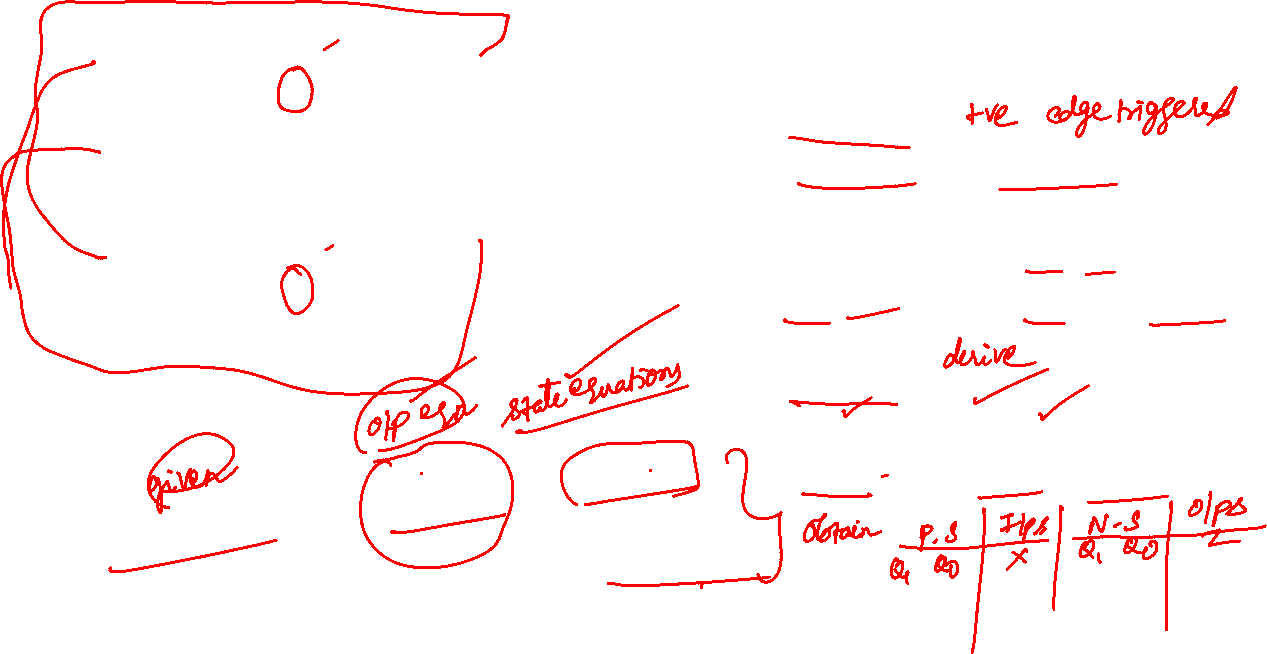 +ve edge triggered
derive
state equations
O/P eqn
given
obtain
P.S I/ps N-S O/ps
Q₁ Q0 X Q₁ Q0 Z